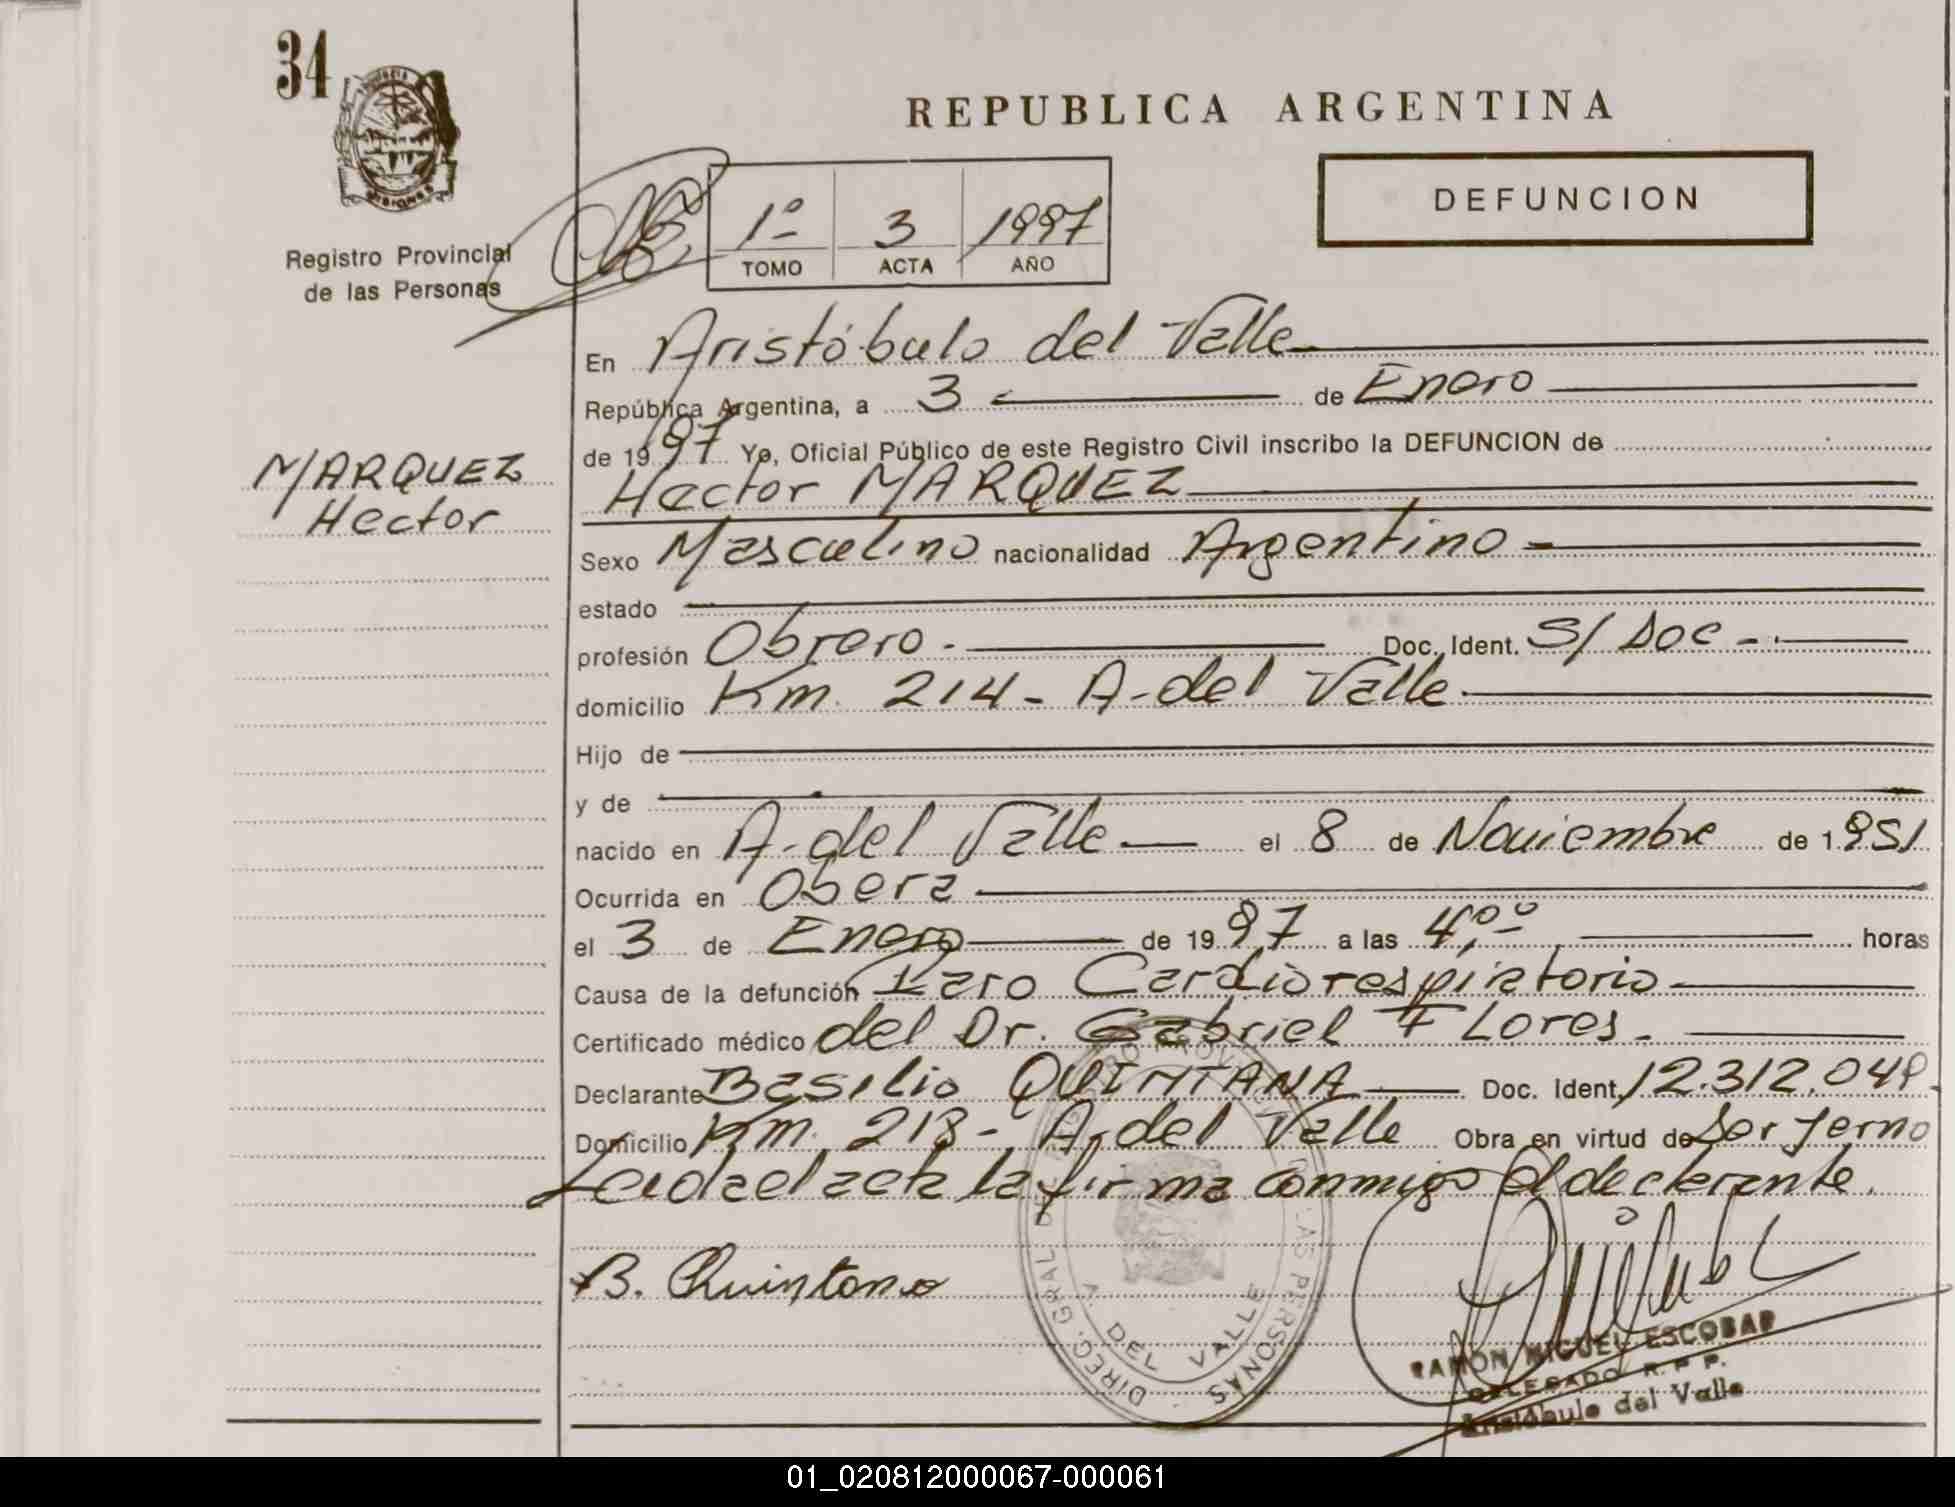 34
REPUBLICA ARGENTINA
DEFUNCION
Registro Provincial
de las Personas
1º 3 1997
TOMO ACTA AÑO
En Aristóbulo del Valle
República Argentina, a 3 de Enero
de 1997 Yo, Oficial Público de este Registro Civil inscribo la DEFUNCION de
MARQUEZ
Hector
Hector MARQUEZ
Sexo Masculino nacionalidad Argentino
estado
profesión Obrero.- Doc. Ident. S/Doc -.
domicilio Km. 214 - A. del Valle
Hijo de
y de
nacido en A. del Valle el 8 de Noviembre de 1951
Ocurrida en Obera
el 3 de Enero de 1997 a las 4,ºº horas
Causa de la defunción Paro Cardiorespiratorio
Certificado médico del Dr. Gabriel FLores.
Declarante Basilio QUINTANA Doc. Ident. 12.312.049.
Domicilio Km. 213 - A. del Valle Obra en virtud de Ser Yerno
Leida el acta la firma conmigo el declarante.
B. Quintana
DIREC. GRAL. DEL REGISTRO PROVINCIAL DE LAS PERSONAS
A. DEL VALLE
RAMON MIGUEL ESCOBAR
DELEGADO R.P.P.
Aristóbulo del Valle
01_020812000067-000061